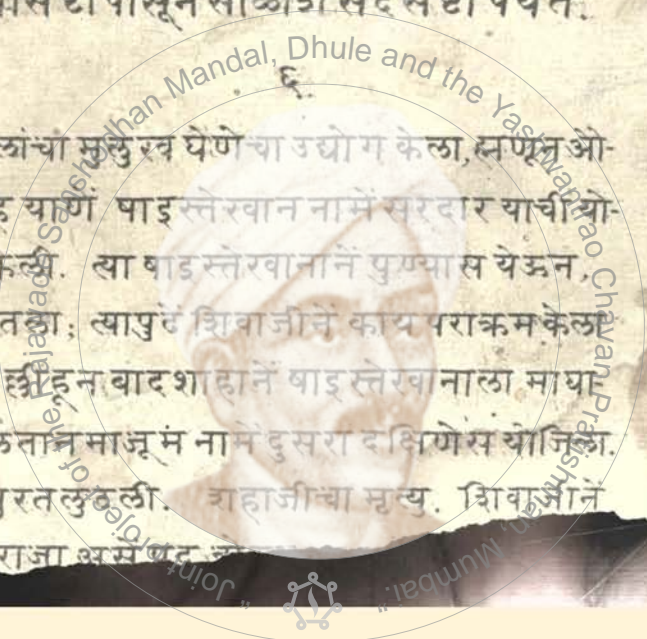 पासून सोळाशें सदसष्टी पर्यंत.
६
लांचा मुलुख घेणेचा उद्योग केला, ह्मणून औ-
याणें षाइस्तेखान नामें सरदार याची यो-
केली. त्या षाइस्तेखानानें पुण्यास येऊन,
तला; त्यापुढें शिवाजीनें काय पराक्रम केला
ल्लीहून बादशाहानें षाइस्तेखानाला माघा-
माजूम नामें दुसरा दक्षिणेस योजिला.
सुरत लुटली. शहाजीचा मृत्यु. शिवाजीनें
राजा असें पद
Joint project of the Rajawade Sanshodhan Mandal, Dhule and the Yashwantrao Chavan Pratishthan, Mumbai.